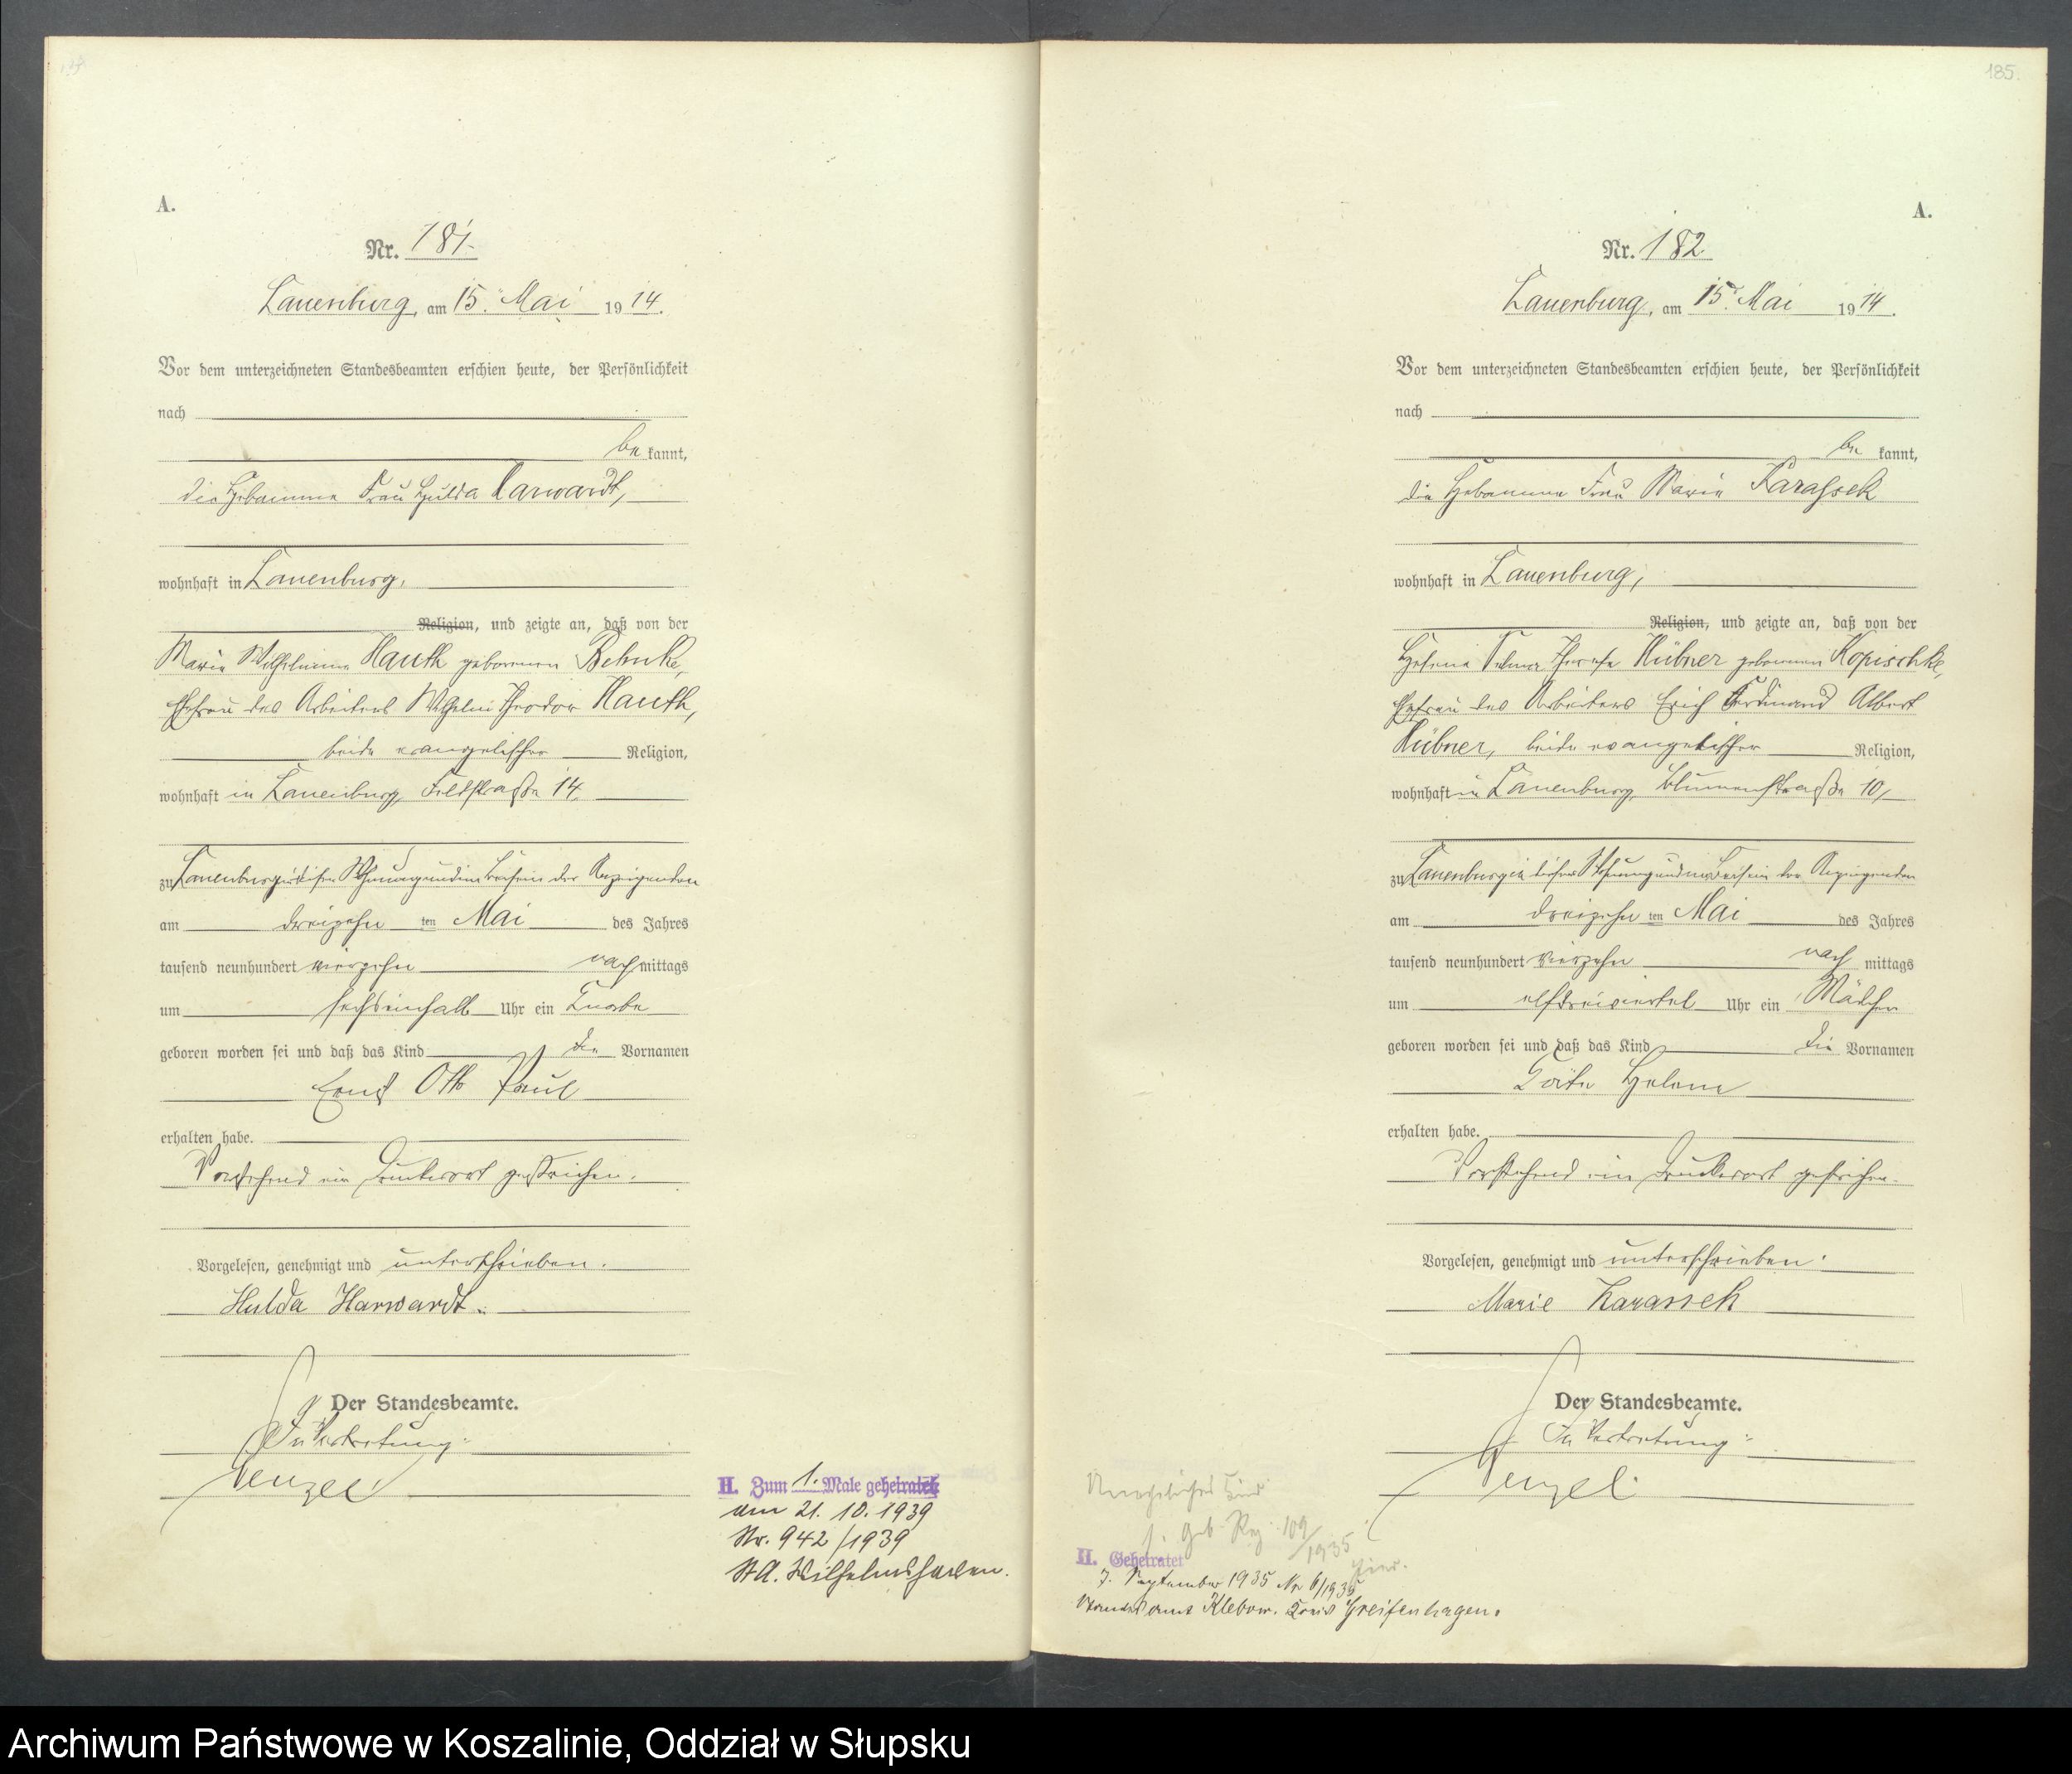 A.
Nr. 181.
Lauenburg, am 15. Mai 1914.
Vor dem unterzeichneten Standesbeamten erschien heute, der Persönlichkeit
nach
be kannt,
die Hebamme Frau Hulda Harwardt,
wohnhaft in Lauenburg,
Religion, und zeigte an, daß von der
Marie Wilhelmine Hauth geborenen Behnke,
Ehefrau des Arbeiters Wilhelm Theodor Hauth,
beide evangelischer Religion,
wohnhaft in Lauenburg, Feldstraße 14,
zu Lauenburg in dieser Wohnung und in Beisein der Anzeigenden
am dreizehn ten Mai des Jahres
tausend neunhundert vierzehn nachmittags
um sechseinhalb Uhr ein Knabe
geboren worden sei und daß das Kind die Vornamen
Ernst Otto Paul
erhalten habe.
Vorstehend ein Druckwort gestrichen.
Vorgelesen, genehmigt und unterschrieben.
Hulda Harwardt.
Der Standesbeamte.
In Vertretung:
Wenzel
II. Zum 1. Male geheiratet
am 21. 10. 1939
Nr. 942/1939
StA. Wilhelmshaven.
185.
A.
Nr. 182
Lauenburg, am 15. Mai 1914.
Vor dem unterzeichneten Standesbeamten erschien heute, der Persönlichkeit
nach
be kannt,
die Hebamme Frau Marie Karassek
wohnhaft in Lauenburg,
Religion, und zeigte an, daß von der
Helene Selma Therese Hübner geborenen Kopischke,
Ehefrau des Arbeiters Erich Ferdinand Albert
Hübner, beide evangelischer Religion,
wohnhaft in Lauenburg, Blumenstraße 10,
zu Lauenburg in dieser Wohnung und in Beisein der Anzeigenden
am dreizehn ten Mai des Jahres
tausend neunhundert vierzehn nach mittags
um elfdreiviertel Uhr ein Mädchen
geboren worden sei und daß das Kind die Vornamen
Käte Helene
erhalten habe.
Vorstehend ein Druckwort gestrichen.
Vorgelesen, genehmigt und unterschrieben.
Marie Karassek
Der Standesbeamte.
In Vertretung:
Wenzel
Uneheliches Kind
s. Geb. Reg. 109/1935
hier.
II. Geheiratet
7. September 1935 Nr 6/1935
Standesamt Klebow. Kreis Greifenhagen.
Archiwum Państwowe w Koszalinie, Oddział w Słupsku